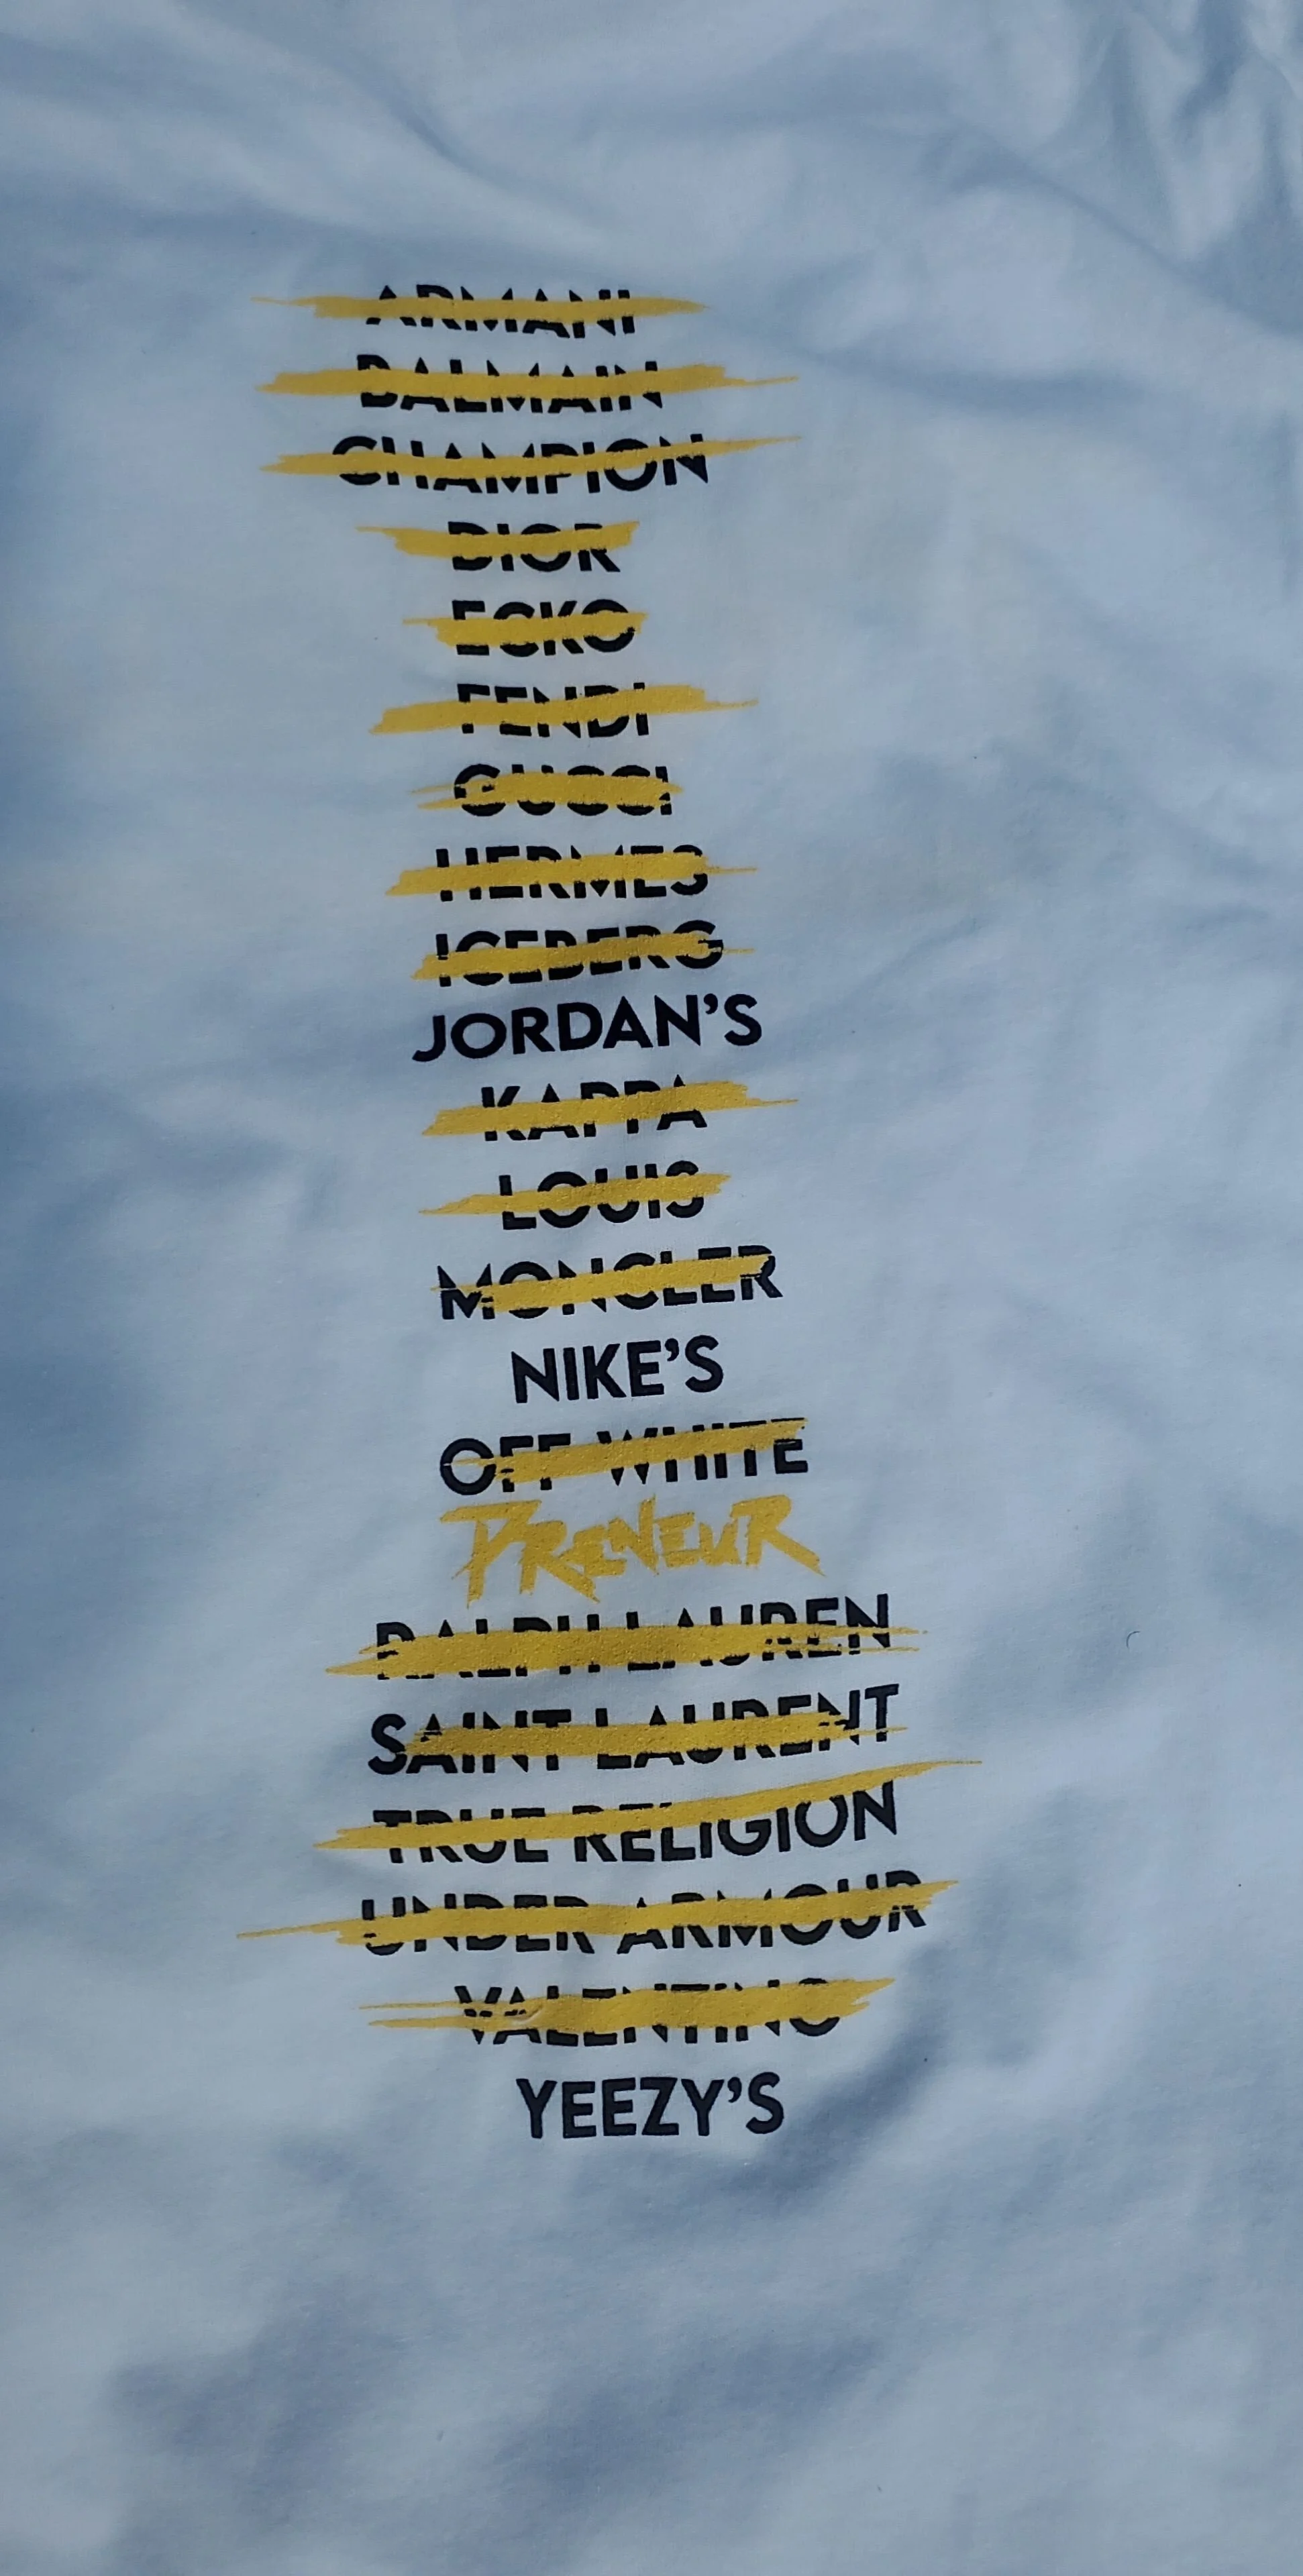 ARMANI
BALMAIN
CHAMPION
DIOR
ECKO
FENDI
GUCCI
HERMES
ICEBERG
JORDAN'S
KAPPA
LOUIS
MONCLER
NIKE'S
OFF WHITE
PRENEUR
RALPH LAUREN
SAINT LAURENT
TRUE RELIGION
UNDER ARMOUR
VALENTINO
YEEZY'S